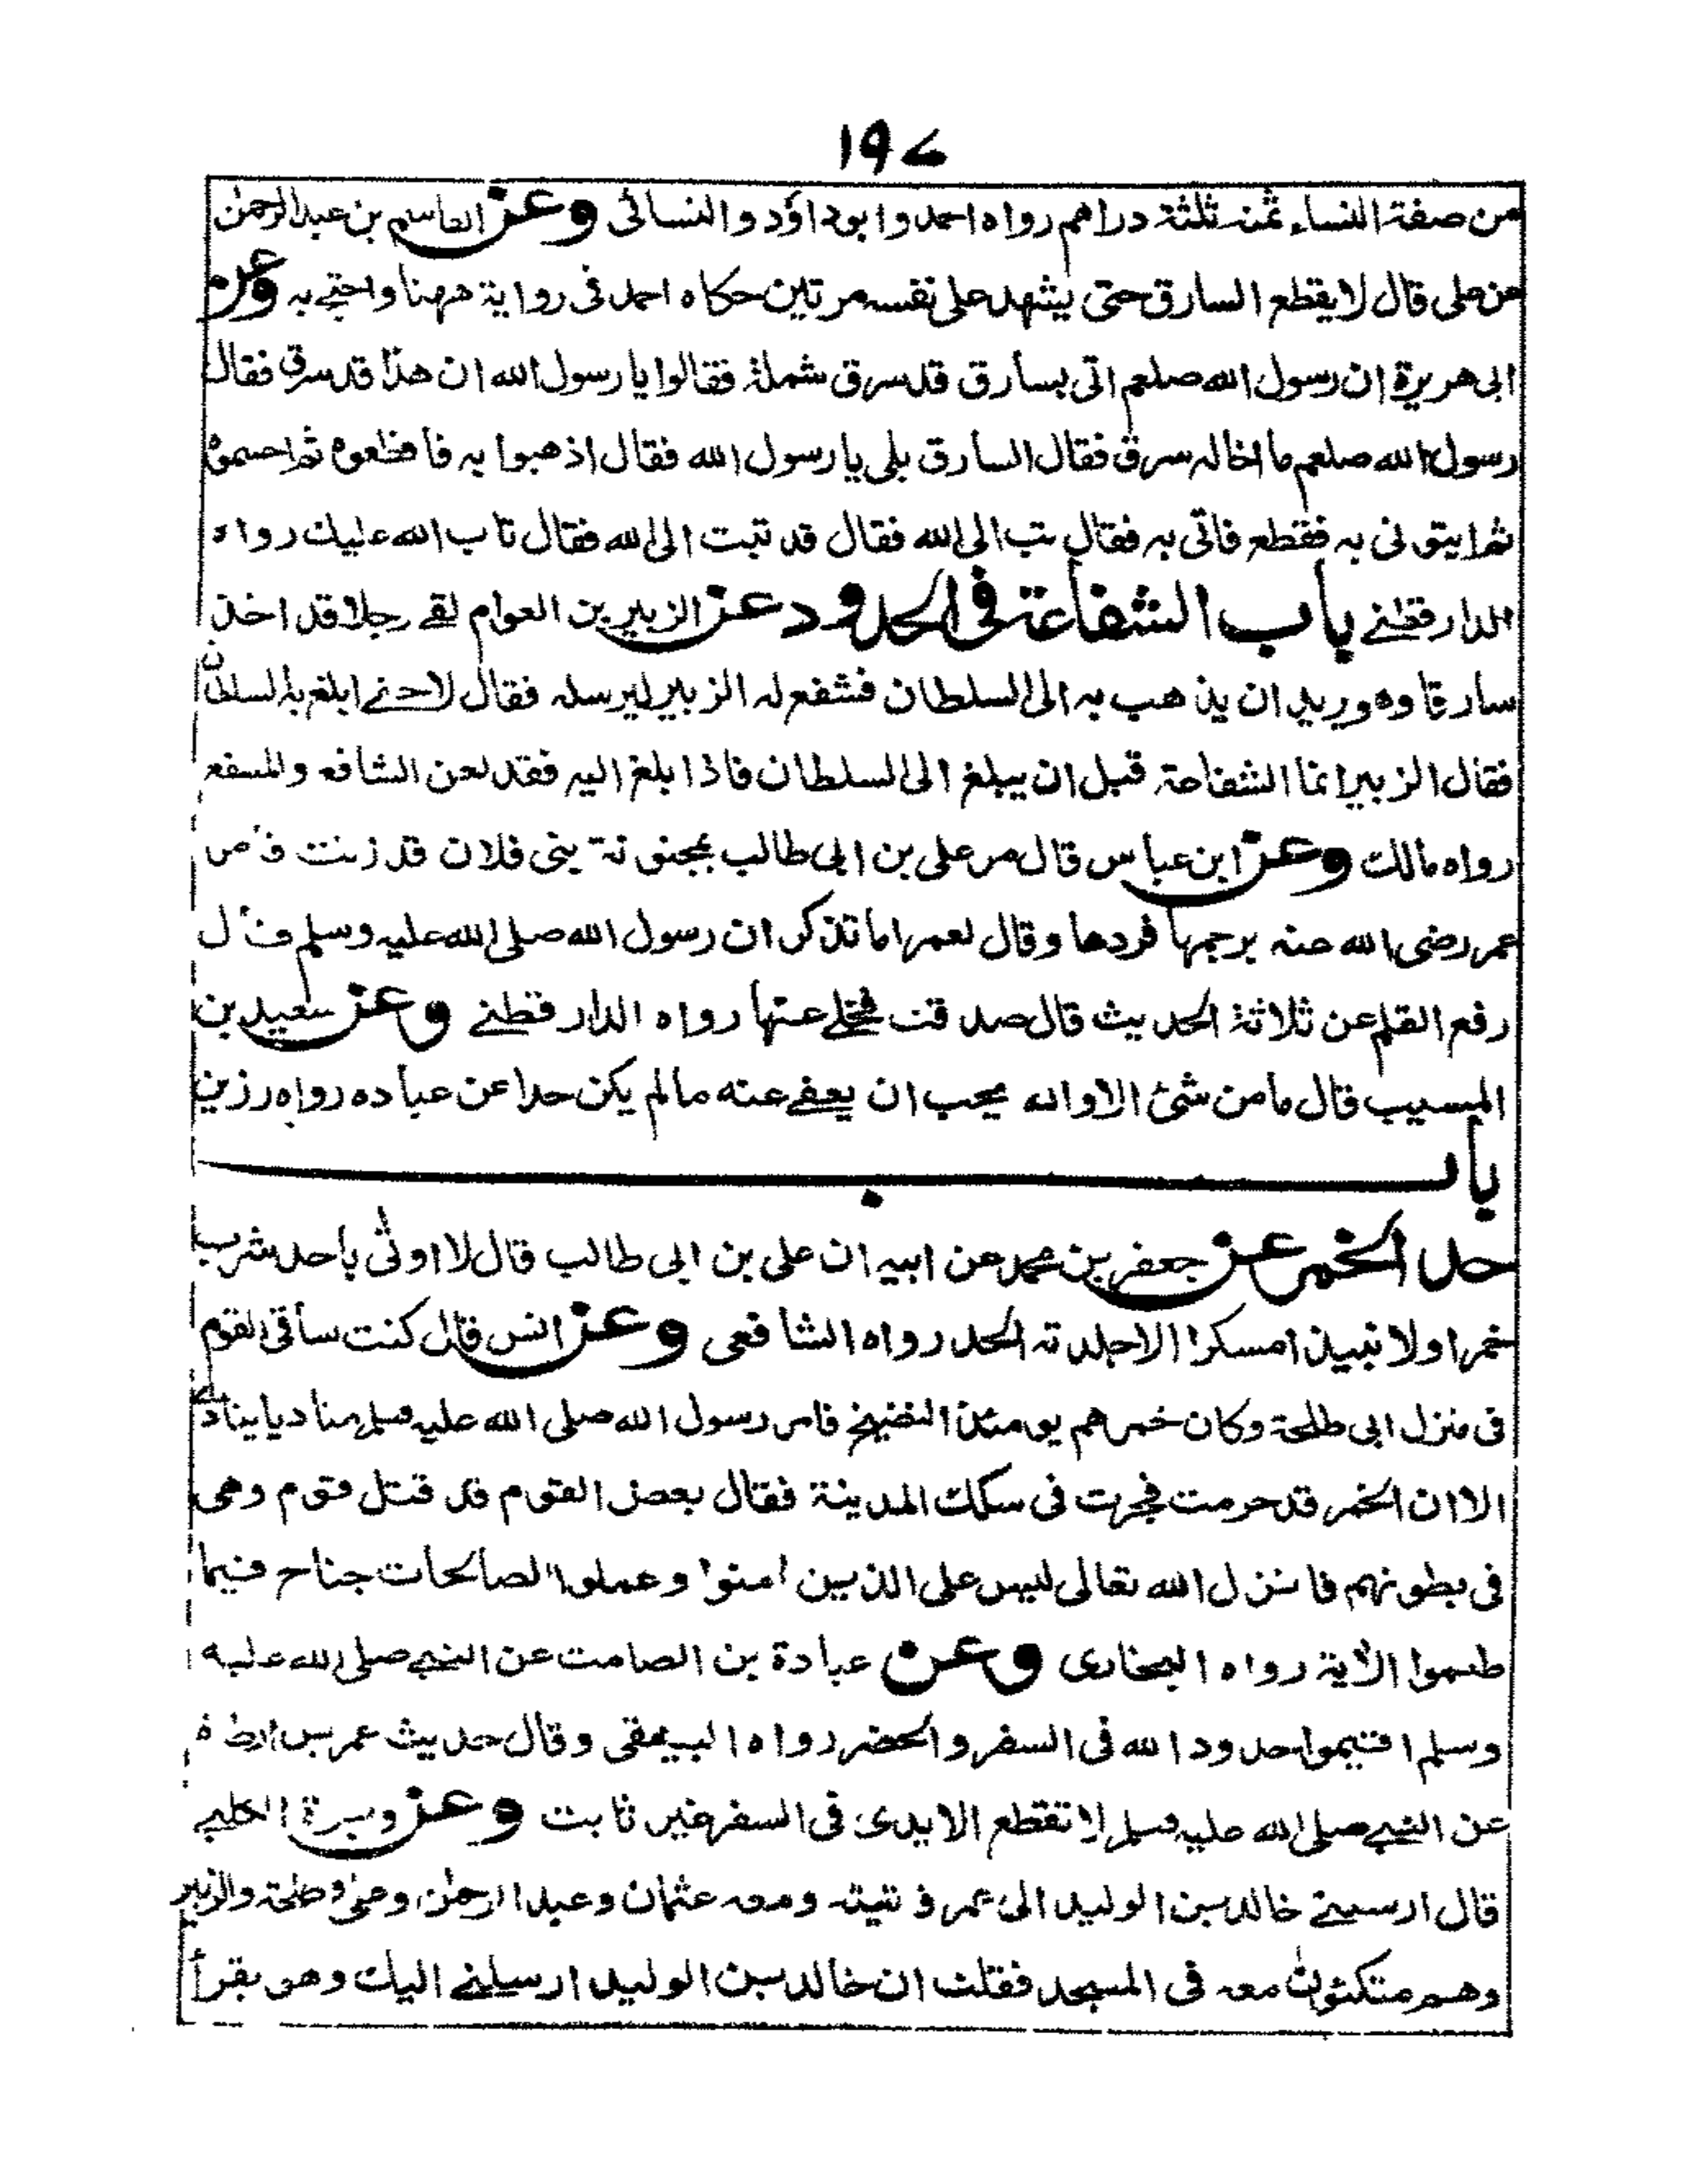 ۱۹۷
من صفة النساء ثمنه ثلثة دراهم رواه احمد وابوداؤد والنسائى وعن القاسم بن عبدالرحمن
عن على قال لا يقطع السارق حتى يشهد على نفسه مرتين حكاه احمد فى رواية مهنا واحتج به وعن
ابى هريرة ان رسول الله صلعم اتى بسارق قد سرق شملة فقالوا يا رسول الله ان هذا قد سرق فقال
رسول الله صلعم ما اخاله سرق فقال السارق بلى يا رسول الله فقال اذهبوا به فاقطعوه ثم احسموه
ثم ايتونى به فقطع فاتى به فقال تب الى الله فقال قد تبت الى الله فقال تاب الله عليك رواه
الدارقطنے باب الشفاعة فى الحدود عن الزبير بن العوام لقے رجلا قد اخذ
سارقا وهو يريد ان يذهب به الى السلطان فشفع له الزبير ليرسله فقال لا حتے ابلغ به السلطان
فقال الزبير انما الشفاعة قبل ان يبلغ الى السلطان فاذا بلغ اليه فقد لعن الشافع والمشفع
رواه مالك وعن ابن عباس قال مر على بن ابى طالب بمجنونة بنى فلان قد زنت فامر
عمر رضى الله عنه برجمها فردها وقال لعمر اما تذكر ان رسول الله صلى الله عليه وسلم قال
رفع القلم عن ثلاثة الحديث قال صدقت فخلے عنها رواه الدارقطنے وعن سعيد بن
المسيب قال ما من شئ الا والله يحب ان يعفے عنه ما لم يكن حدا عن عباده رواه رزين
باب
حد الخمر عن جعفر بن محمد عن ابيه ان على بن ابى طالب قال لا اوتى باحد شرب
خمرا ولا نبيذا مسكرا الا جلدته الحد رواه الشافعى وعن انس قال كنت ساقى القوم
فى منزل ابى طلحة وكان خمرهم يومئذ الفضيخ فامر رسول الله صلى الله عليه وسلم مناديا ينادے
الا ان الخمر قد حرمت فجرت فى سكك المدينة فقال بعض القوم قد قتل قوم وهى
فى بطونهم فانزل الله تعالى ليس على الذين امنوا وعملوا الصالحات جناح فيما
طعموا الآية رواه البخارى وعن عبادة بن الصامت عن النبے صلى الله عليه
وسلم اقيموا حدود الله فى السفر والحضر رواه البيهقى وقال حديث عمر بن ارطاة
عن النبے صلى الله عليه وسلم لا تقطع الايدى فى السفر غير ثابت وعن وبرة الكلبے
قال ارسلنے خالد بن الوليد الى عمر فاتيته ومعه عثمان وعبد الرحمن وعلى وطلحة والزبير
وهم متكئون معه فى المسجد فقلت ان خالد بن الوليد ارسلنے اليك وهو يقرأ